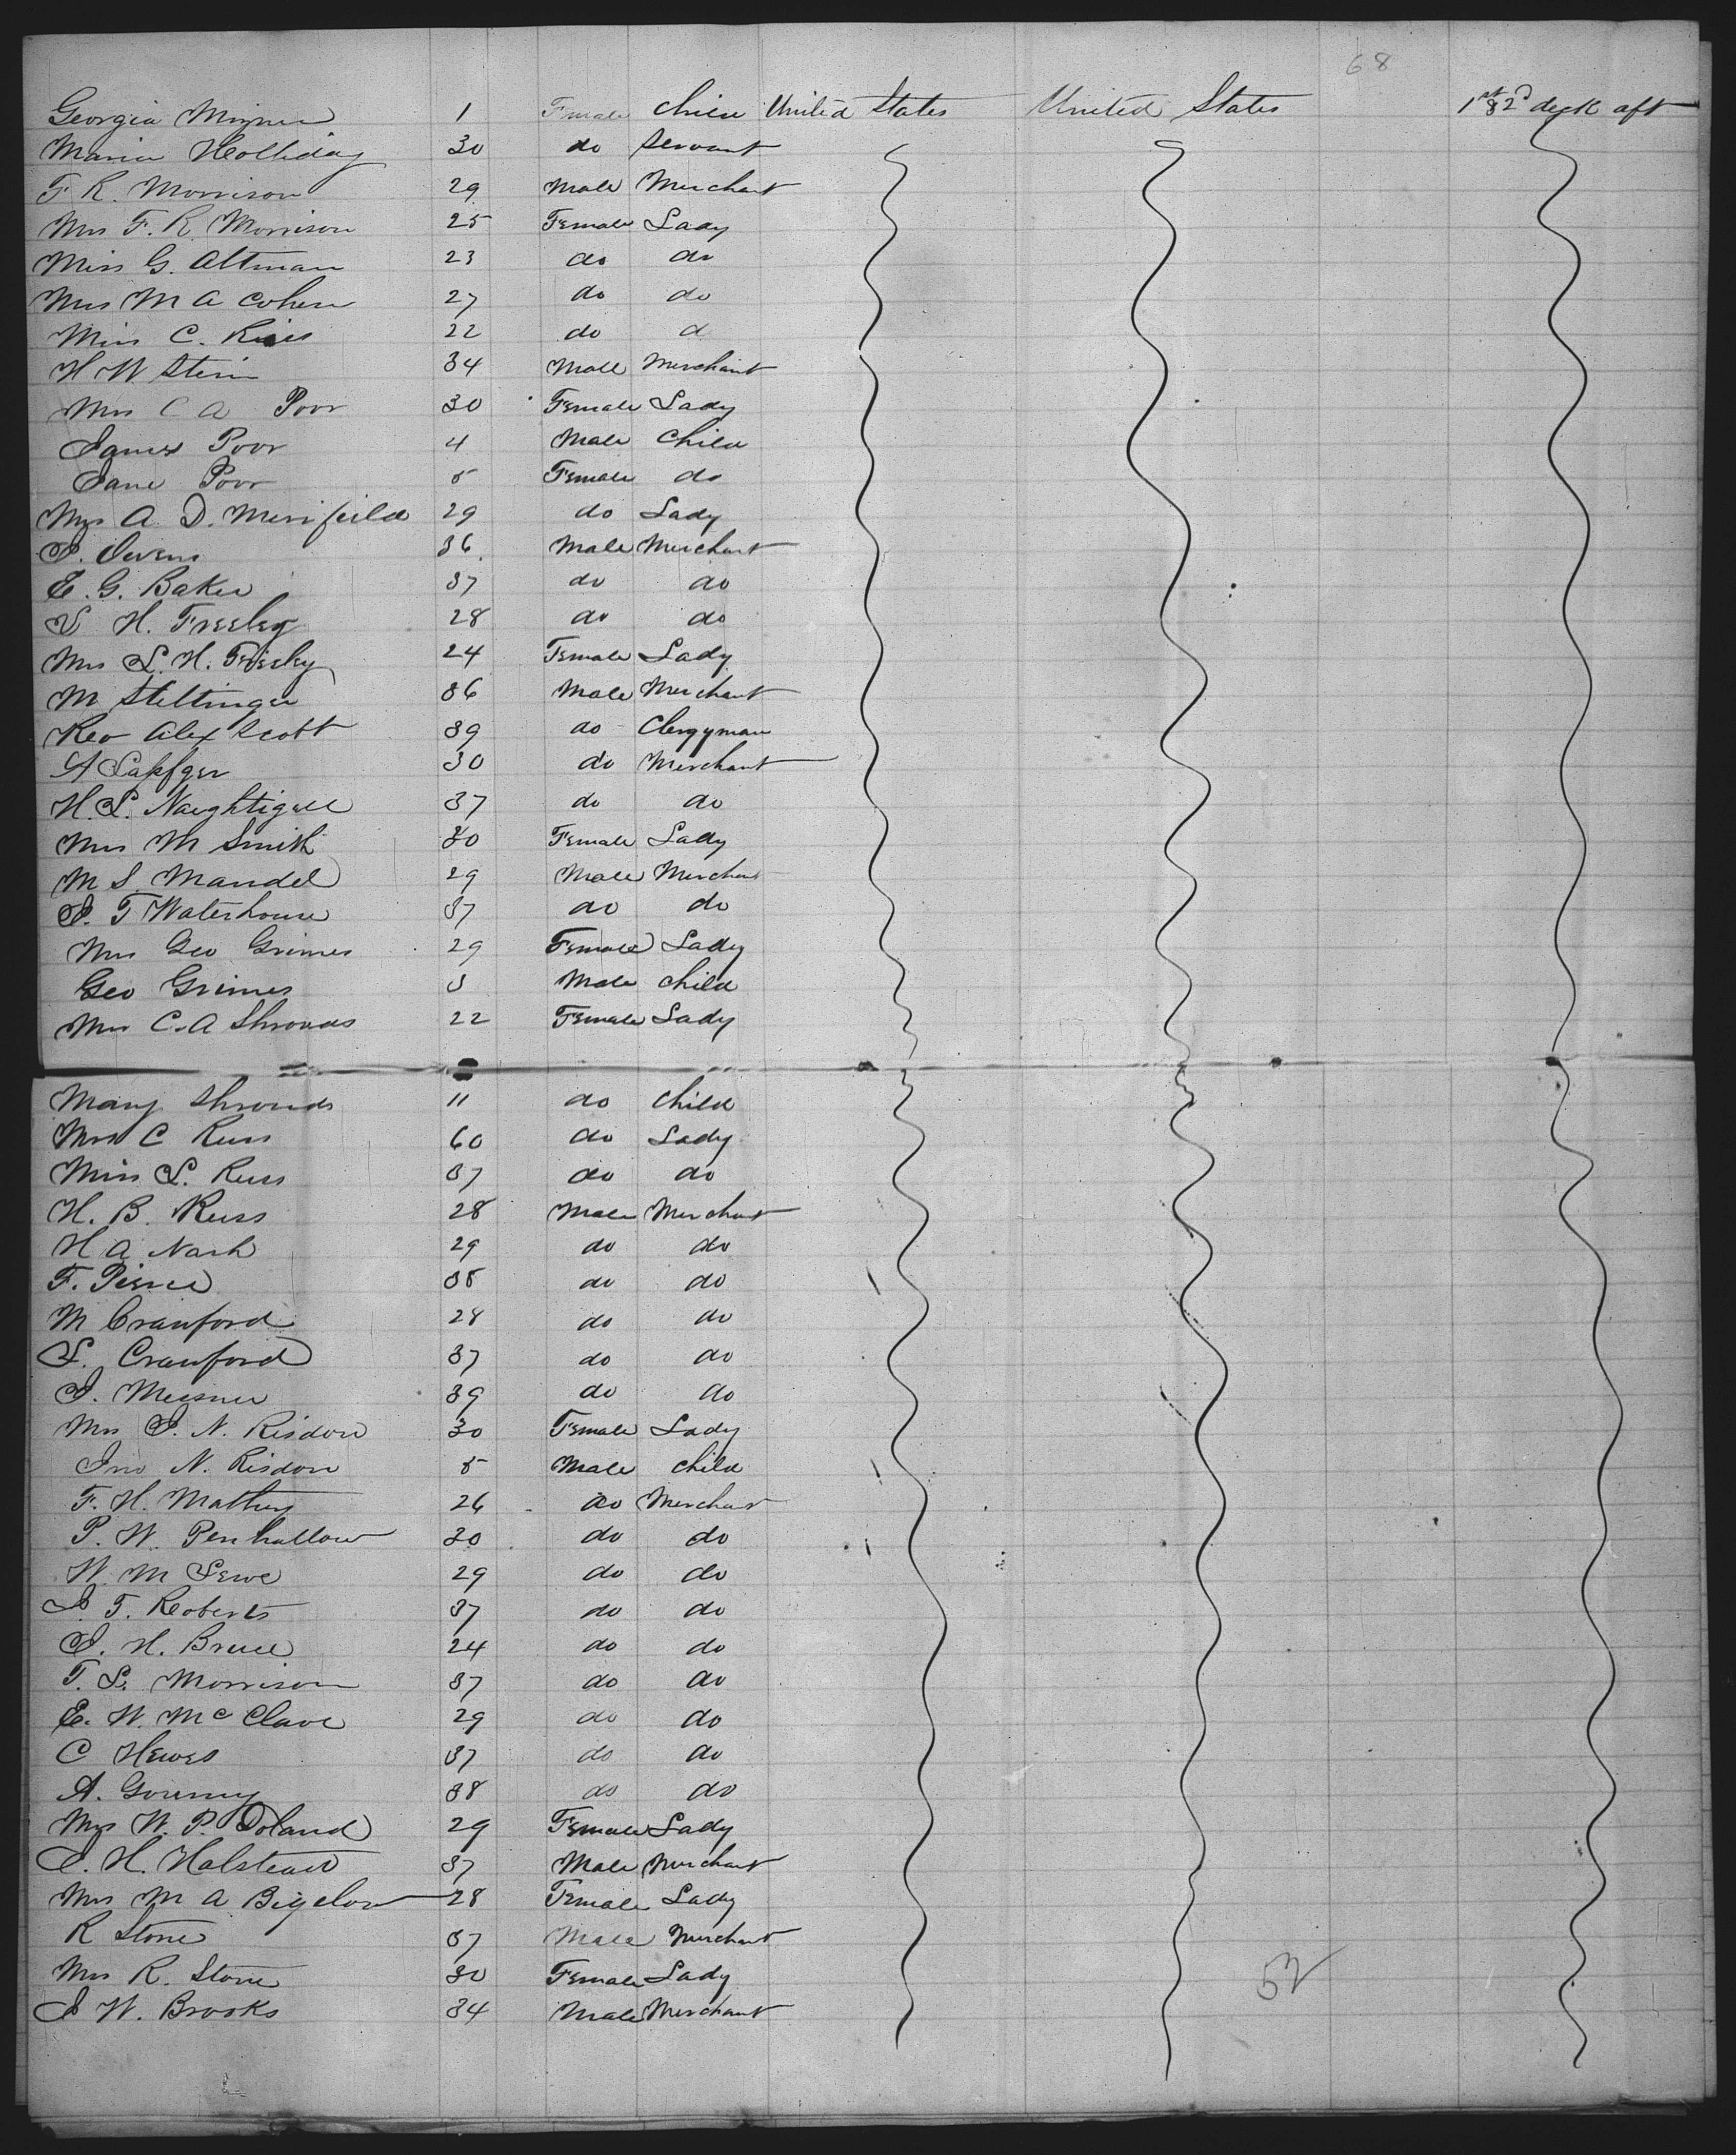 68
Georgia Mizner 1 Female Child United States United States 1st & 2d deck aft
Maria Holliday 30 do Servant
F R. Morrison 29 Male Merchant
Mrs F. R. Morrison 25 Female Lady
Miss G. Altman 23 do do
Mrs M A Cohen 27 do do
Miss C. 22 do d
H W Stein 34 Male Merchant
Mrs C A Poor 30 Female Lady
James Poor 4 Male Child
Jane Poor 5 Female do
Mrs A. D. Merifield 29 do Lady
J. Owens 36 Male Merchant
E. G. Baker 37 do do
S H. Freeley 28 do do
Mrs L. H. 24 Female Lady
M 36 Male Merchant
Rev Alex Scott 39 do Clergyman
A 30 do Merchant
H. L. Naughtigall 37 do do
Mrs M Smith 30 Female Lady
M S. Mandel 29 Male Merchant
J. T Waterhouse 37 do do
Mrs Geo Grimes 29 Female Lady
Geo Grimes 3 Male Child
Mrs C. A Shrouds 22 Female Lady
Mary Shrouds 11 do Child
Mrs C Russ 60 do Lady
Miss L. Russ 37 do do
H. B. Russ 28 Male Merchant
H A Nash 29 do do
F. Pierce 35 do do
M Crawford 28 do do
L. Crawford 37 do do
J. Meesner 39 do do
Mrs J. N. Risdon 30 Female Lady
Jno N. Risdon 5 Male Child
F. H. 26 do Merchant
P. W. Penhallow 30 do do
W. M Lewe 29 do do
J. T. Roberts 37 do do
J. H. Bruce 24 do do
T. L. Morrison 37 do do
E. W. McClave 29 do do
C Hewes 37 do do
A. 38 do do
Mrs W. P. Toland 29 Female Lady
J. H. Halstead 37 Male Merchant
Mrs M A Bigelow 28 Female Lady
R Stone 37 Male Merchant
Mrs R. Stone 30 Female Lady
J W. Brooks 34 Male Merchant
52